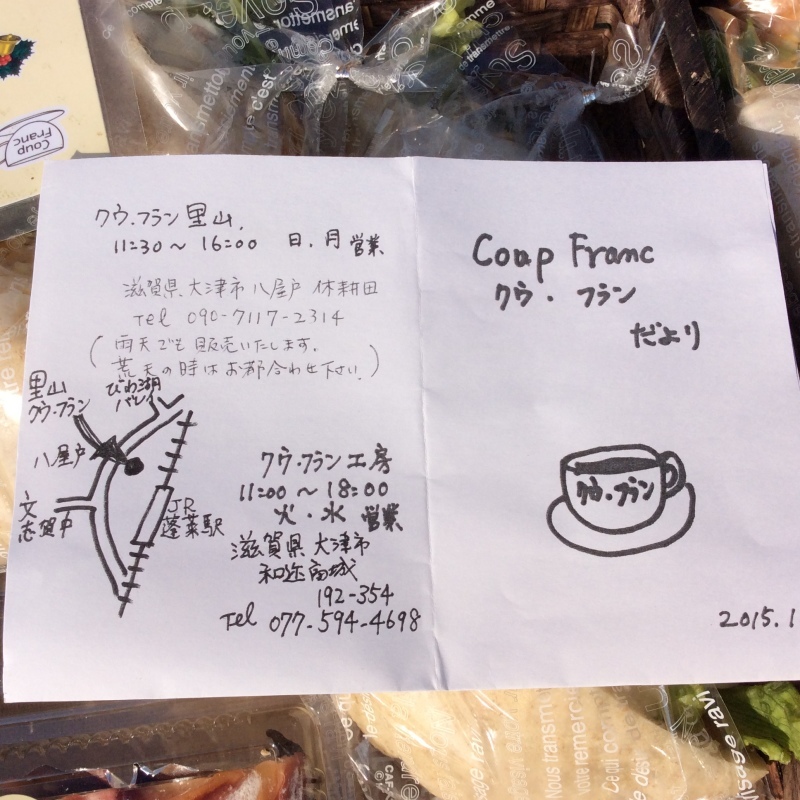 クウ・フラン里山
11:30〜16:00 日、月 営業
滋賀県大津市八屋戸 休耕田
Tel 090-7117-2314
(雨天でも販売いたします。
荒天の時はお都合わせ下さい。)
里山
クウ・フラン
びわ湖
バレイ
八屋戸
文
志賀中
JR
蓬莱駅
クウ・フラン工房
11:00〜18:00
火・水 営業
滋賀県大津市
和迩高城
192-354
Tel 077-594-4698
Coup Franc
クウ・フラン
だより
クウ・フラン
2015.1
Coup
Franc